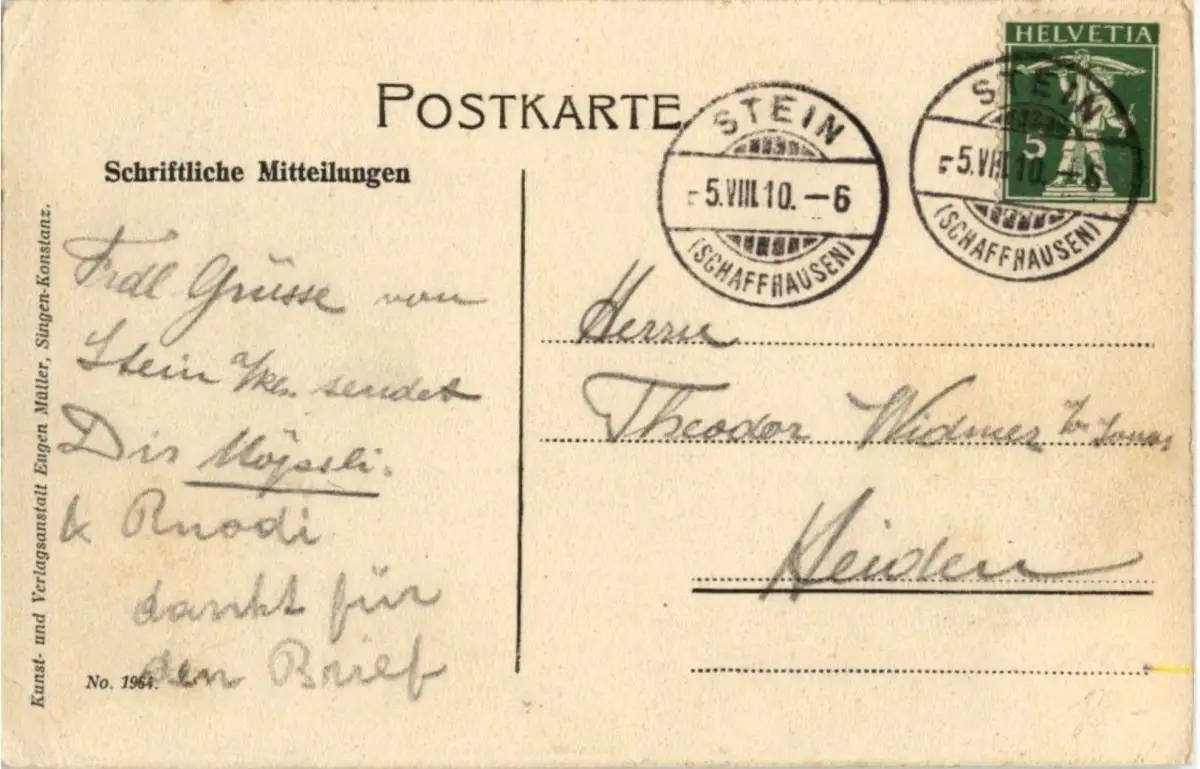 POSTKARTE
Schriftliche Mitteilungen
HELVETIA
5
STEIN
5.VIII.10.-6
(SCHAFFHAUSEN)
STEIN
5.VIII.10.-6
(SCHAFFHAUSEN)
Frdl Grüsse von
Stein a/Rh. sendet
Dir
& Ruodi
dankt für
den Brief
Herrn
Theodor Widmer
Heiden
Kunst- und Verlagsanstalt Eugen Müller, Singen-Konstanz.
No. 1964.